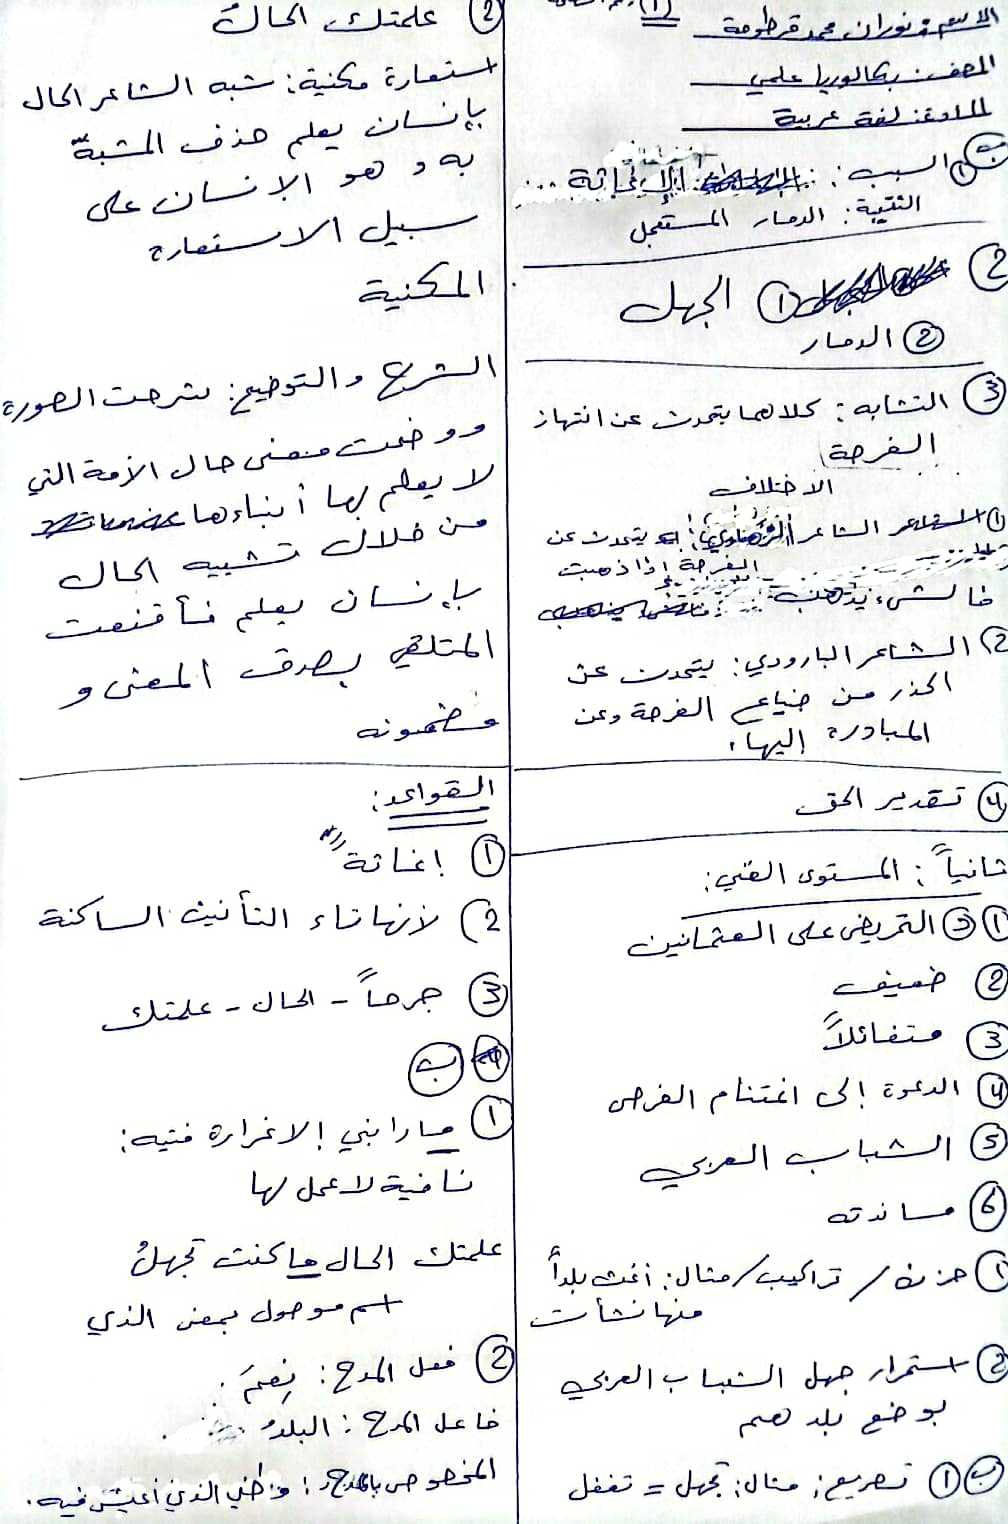 الاسم: نوران محمد قرطومة
الصف: بكالوريا علمي
المادة: لغة عربية
(1)
ب
① السبب: الإغاثة
النتيجة: الدمار المستعجل
②
① الجهل
② الدمار
③ التشابه: كلاهما يتحدث عن انتهاز
الفرصة
الاختلاف
① الشاعر الزهاوي: يتحدث عن
الفرصة إذا ذهبت
فالشيء يذهب
② الشاعر البارودي: يتحدث عن
الحذر من ضياع الفرصة وعن
المبادرة إليها.
④ تقدير الحق
ثانياً: المستوى الفني:
① ③ التحريض على العثمانين
② ضعيف
③ متفائلاً
④ الدعوة إلى اغتنام الفرص
⑤ الشباب العربي
⑥ مساندته
① حزن / تراكيب / مثال: أغث بلداً
منها نشأت
② استمرار جهل الشباب العربي
بوضع بلدهم
ب ① تصريع: مثال: تجهل = تغفل
② علمتك الحالُ
استعارة مكنية: شبه الشاعر الحال
بإنسان يعلم حذف المشبّه
به وهو الانسان على
سبيل الاستعارة
المكنية
الشرح والتوضيح: شرحت الصورة
ووضحت معنى حال الأمة التي
لا يعلم بها أبناءها
من خلال تشبيه الحال
بإنسان يعلم فأقنعت
المتلقي بصدق المعنى و
مضمونه
القواعد:
① إغاثة
② لأنها تاء التأنيث الساكنة
③ جرحاً - الحال - علمتك
ب
① ما رابني إلا غرارة فتية:
نافية لا عمل لها
علمتك الحال ما كنت تجهلُ
اسم موصول بمعنى الذي
② فعل المدح: نِعمَ.
فاعل المدح: البلدُ
المخصوص بالمدح: وطني الذي أعيش فيه.